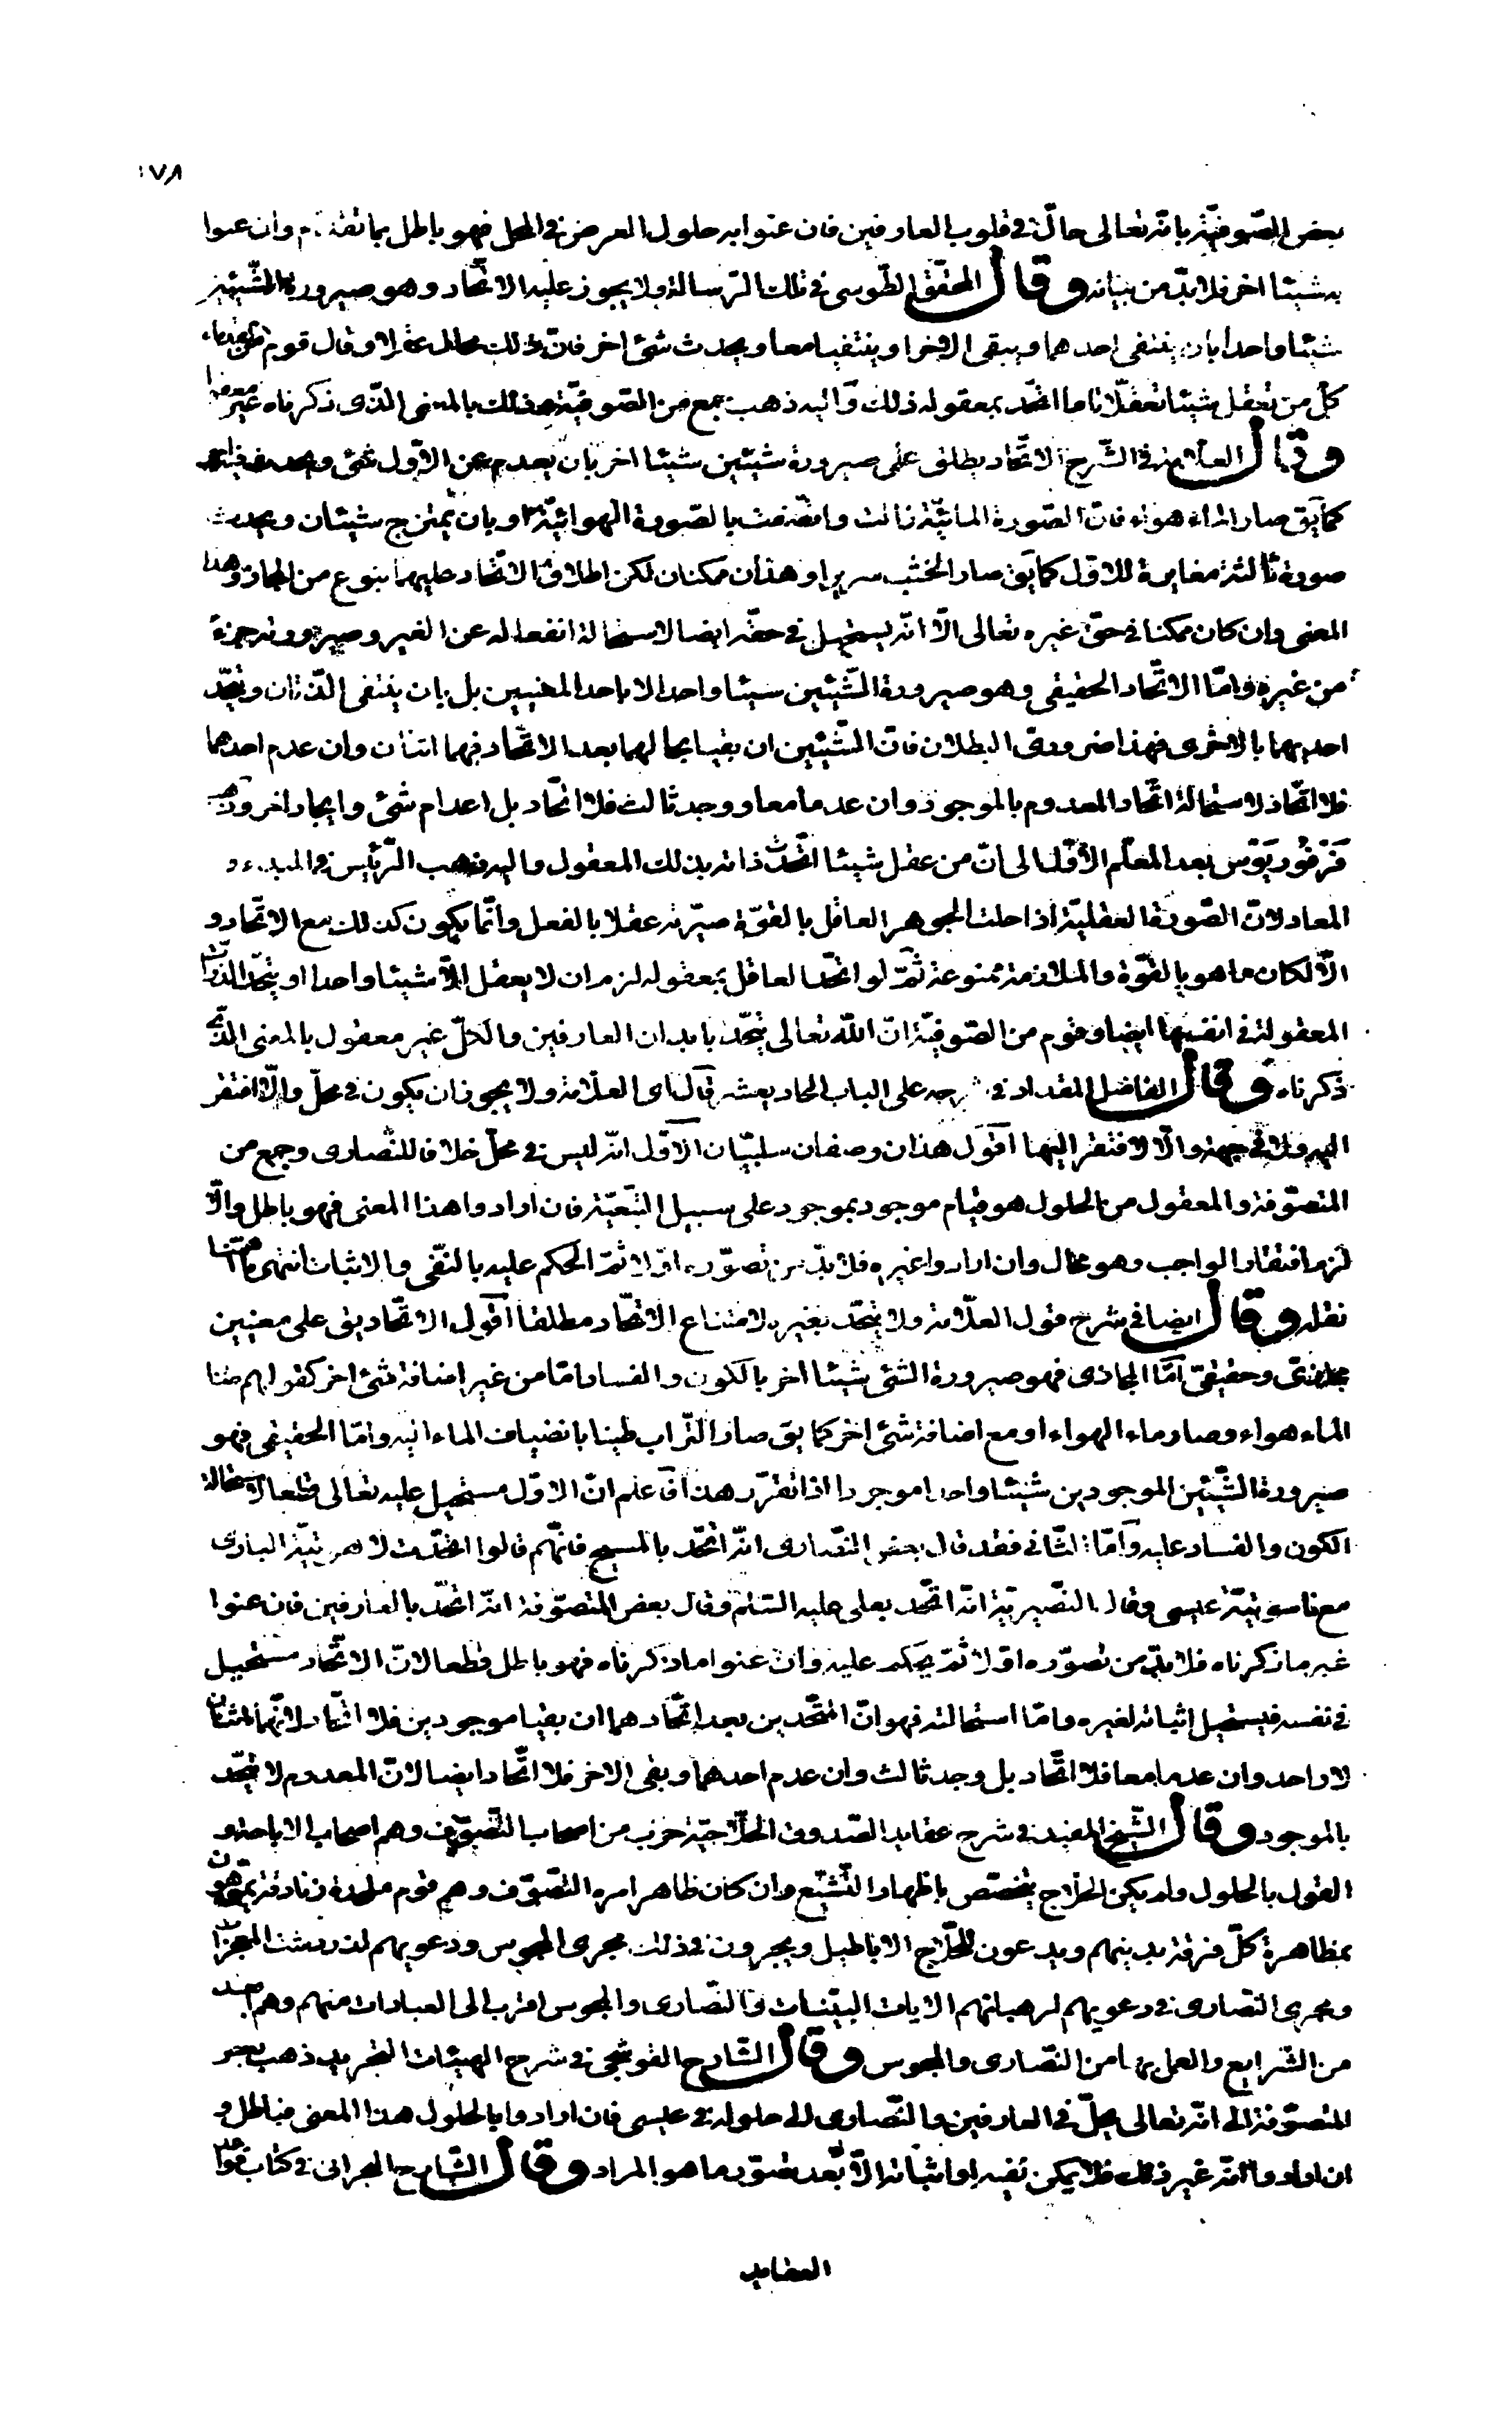 ١٧٨
بعض الصّوفيّة بانّه تعالى حالّ في قلوب العارفين فان عنوا به حلول العرض في المحل فهو باطل بما تقدّم وان عنوا
به شيئا اخر فلا بدّ من بيانه وقال المحقق الطّوسى في تلك الرّسالة ولا يجوز عليه الاتّحاد وهو صيرورة الشّيئين
شيئا واحدا بان ينتفى احدهما ويبقى الاخر او ينتفيا معا ويحدث شئ اخر فانّ ذلك محال عقلا وقال قوم من القدماء
كلّ من تعقل شيئا تعقّلا تاما اتّحد بمعقوله ذلك واليه ذهب جمع من الصّوفيّة وذلك بالمعنى الّذى ذكرناه غير معقول
وقال العلّامة في الشّرح الاتّحاد يطلق على صيرورة شيئين شيئا اخر بان يعدم عن الاوّل شئ ويحدث فيه اخر
كما يق صار الماء هواء فانّ الصّورة المائيّة زالت واتّصفت بالصّورة الهوائيّة او بان يمتزج شيئان ويحدث
صورة ثالثة مغايرة للاوّل كما يق صار الخشب سريرا وهذان ممكنان لكن اطلاق الاتّحاد عليهما بنوع من المجاز وهذا
المعنى وان كان ممكنا في حقّ غيره تعالى الّا انّه يستحيل في حقّه ايضا لاستحالة انفعاله عن الغير وصيرورته جزء
من غيره وامّا الاتّحاد الحقيقى وهو صيرورة الشّيئين شيئا واحدا لا باحد المعنيين بل بان ينتفى الذّاتان ويتّحد
احديهما بالاخرى فهذا ضرورىّ البطلان فانّ الشّيئين ان بقيا بحالهما بعد الاتّحاد فهما اثنان وان عدم احدهما
فلا اتّحاد لاستحالة اتّحاد المعدوم بالموجود وان عدما معا ووجد ثالث فلا اتّحاد بل اعدام شئ وايجاد اخر وذهب
فَرْفُورِيُوس بعد المعلّم الاوّل الى انّ من عقل شيئا اتّحدت ذاته بذلك المعقول واليه ذهب الرّئيس في المبدء و
المعاد لانّ الصّورة العقليّة اذا حلت الجوهر العاقل بالقوّة صيّرته عقلا بالفعل وانّما يكون كذلك مع الاتّحاد و
الّا لكان ما هو بالقوّة والملازمة ممنوعة ثمّ لو اتّحد العاقل بمعقوله لزم ان لا يعقل الّا شيئا واحدا او يتّحد الذّوات
المعقولة في انفسها ايضا وقوم من الصّوفيّة انّ اللّه تعالى يتّحد بابدان العارفين والكلّ غير معقول بالمعنى الّذى
ذكرناه وقال الفاضل المقداد في شرحه على الباب الحادى عشر قال اى العلّامة ولا يجوز ان يكون في محلّ والّا افتقر
اليه ولا في جهة والّا لافتقر اليها اقول هذان وصفان سلبيّان الاوّل انّه ليس في محلّ خلافا للنّصارى وجمع من
المتصوّفة والمعقول من الحلول هو قيام موجود بموجود على سبيل التّبعيّة فان ارادوا هذا المعنى فهو باطل والّا
لزم افتقار الواجب وهو محال وان ارادوا غيره فلا بدّ من تصوّره اوّلا ثمّ الحكم عليه بالنّفى والاثبات انتهى ما اردنا
نقله وقال ايضا في شرح قول العلّامة ولا يتّحد بغيره لامتناع الاتّحاد مطلقا اقول الاتّحاد يق على معنيين
مجازىّ وحقيقىّ امّا المجازى فهو صيرورة الشئ شيئا اخر بالكون والفساد امّا من غير اضافة شئ اخر كقولهم صار
الماء هواء وصار ماء الهواء او مع اضافة شئ اخر كما يق صار التّراب طينا بانضياف الماء اليه وامّا الحقيقى فهو
صيرورة الشّيئين الموجودين شيئا واحدا موجودا اذا تقرّر هذا فاعلم انّ الاوّل مستحيل عليه تعالى قطعا لاستحالة
الكون والفساد عليه وامّا الثّانى فقد قال بعض النّصارى انّه اتّحد بالمسيح فانّهم قالوا اتّحدت لاهوتيّة البارى
مع ناسوتيّة عيسى وقال النّصيريّة انّه اتّحد بعلى عليه السّلام وقال بعض المتصوّفة انّه اتّحد بالعارفين فان عنوا
غير ما ذكرناه فلا بدّ من تصوّره اوّلا ثمّ يحكم عليه وان عنوا ما ذكرناه فهو باطل قطعا لانّ الاتّحاد مستحيل
في نفسه فيستحيل اثباته لغيره وامّا استحالته فهو انّ المتّحدين بعد اتّحادهما ان بقيا موجودين فلا اتّحاد لانّهما اثنان
لا واحد وان عدما معا فلا اتّحاد بل وجد ثالث وان عدم احدهما وبقى الاخر فلا اتّحاد ايضا لانّ المعدوم لا يتّحد
بالموجود وقال الشّيخ المفيد في شرح عقايد الصّدوق الحلّاجيّة ضرب من اصحاب التّصوّف وهم اصحاب الاباحة و
القول بالحلول ولم يكن الحلّاج يتخصّص باظهار التّشيّع وان كان ظاهر امره التّصوّف وهم قوم ملحدة وزنادقة يموّهون
بمظاهرة كلّ فرقة بدينهم ويدعون للحلّاج الاباطيل ويجرون في ذلك مجرى المجوس في دعويهم لزردشت المعجزات
ومجرى النّصارى في دعويهم لرهبانهم الايات البيّنات والنّصارى والمجوس اقرب الى العبادات منهم وهم ابعد
من الشّرايع والعمل بها من النّصارى والمجوس وقال الشّارح القوشجى في شرح الهيّات التّجريد ذهب بعض
المتصوّفة الى انّه تعالى يحلّ في العارفين والنّصارى الى حلوله في عيسى فان ارادوا بالحلول هذا المعنى فباطل و
ان ارادوا انّه غير ذلك فلا يمكن نفيه او اثباته الّا بعد تصوّر ما هو المراد وقال الشّارح البحرانى في كتاب قواعد
العقايد